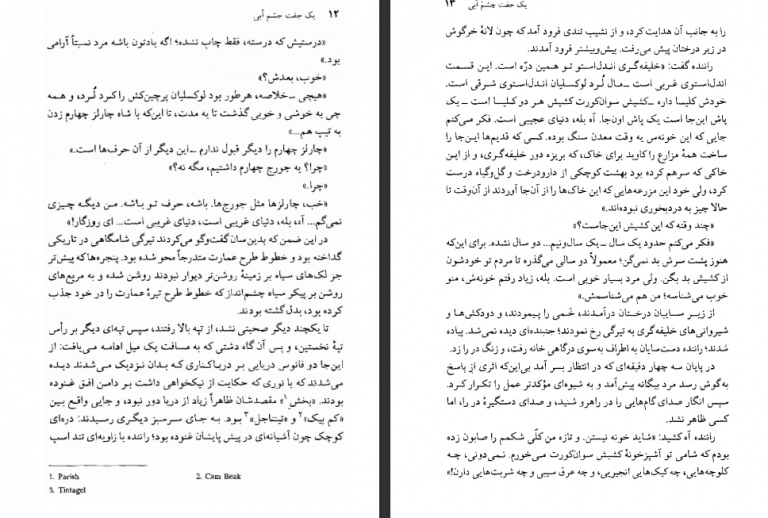 ۱۲ یک جفت چشم آبی
«درستیش که درسته، فقط چاپ نشده؛ اگه یادتون باشه مرد نسبتاً آرامی
بود.»
«خوب، بعدش؟»
«هیچی ــ خلاصه، هرطور بود لوکسلیان پرچین‌کش را کرد لُرد، و همه
چی به خوشی و خوبی گذشت تا یه مدت، تا این‌که با شاه چارلز چهارم زدن
به تیپ هم...»
«چارلز چهارم را دیگر قبول ندارم ــ این دیگر از آن حرف‌ها است.»
«چرا؟ یه جورج چهارم داشتیم، مگه نه؟»
«چرا.»
«خب، چارلزها مثل جورج‌ها. باشه، حرف تو باشه. من دیگه چیزی
نمی‌گم... آه، بله، دنیای غریبی است، دنیای غریبی است... ای روزگار!»
در این ضمن که بدین سان گفت‌وگو می‌کردند تیرگی شامگاهی در تاریکی
گداخته بود و خطوط طرح عمارت متدرجاً محو شده بود. پنجره‌ها که پیش‌تر
جز لک‌های سیاه بر زمینهٔ روشن‌تر دیوار نبودند روشن شده و به مربع‌های
روشن بر پیکر سیاه چشم‌انداز که خطوط طرح تیرهٔ عمارت را در خود جذب
کرده بود، بدل گشته بودند.
تا یکچند دیگر صحبتی نشد، از تپه بالا رفتند، سپس تپه‌ای دیگر بر رأس
تپهٔ نخستین، و پس آن گاه دشتی که به مسافت یک میل ادامه می‌یافت: از
این‌جا دو فانوس دریایی بر دریاکناری که بدان نزدیک می‌شدند دیده
می‌شدند که با نوری که حکایت از نیکخواهی داشت بر دامن افق غنوده
بودند. «بخش۱» مقصدشان ظاهراً زیاد از دریا دور نبوده، و جایی واقع بین
«کم بیک»۲ و «تینتاجل»۳ بود. به جای سرسبز دیگری رسیدند: دره‌ای
کوچک چون آشیانه‌ای در پیش پایشان غنوده بود؛ راننده با زاویه‌ای تند اسپ
1. Parish 2. Cam Beak
3. Tintagel
یک جفت چشم آبی ۱۳
را به جانب آن هدایت کرد، و از نشیب تندی فرود آمد که چون لانهٔ خرگوش
در زیر درختان پیش می‌رفت. بیش‌وبیشتر فرود آمدند.
راننده گفت: «خلیفه‌گری اندل‌استو تو همین درّه است. این قسمت
اندل‌استوی غربی است ــ مال لُرد لوکسلیان اندل‌استوی شرقی است.
خودش کلیسا داره ــ کشیش سوان‌کورت کشیش هر دو کلیسا است ــ یک
پاش این‌جا است یک پاش اون‌جا. آه بله، دنیای عجیبی است. فکر می‌کنم
جایی که این خونه‌س یه وقت معدن سنگ بوده. کسی که قدیم‌ها این‌جا را
ساخت همهٔ مزارع را کاوید برای خاک، که بریزه دور خلیفه‌گری، و از این
خاکی که سرهم کرده بود بهشت کوچکی از دارودرخت و گل‌وگیاه درست
کرد، ولی خود این مزرعه‌هایی که این خاک‌ها را از آن‌جا آوردند از آن‌وقت تا
حالا جیز به دردبخوری نبوده‌اند.»
«چند وقته که این کشیش این‌جاست؟»
«فکر می‌کنم حدود یک سال ــ یک سال‌ونیم... دو سال نشده. برای این‌که
هنوز پشت سرش بد نمی‌گن؛ معمولاً دو سالی می‌گذره تا مردم تو خودشون
از کشیش بد بگن. ولی مرد بسیار خوبی است. بله، زیاد رفتم خونه‌ش، منو
خوب می‌شناسه؛ من هم می‌شناسمش.»
از زیر سایبان درختان درآمدند، خَمی را پیمودند، و دودکش‌ها و
شیروانی‌های خلیفه‌گری به تیرگی رخ نمودند؛ جنبنده‌ای دیده نمی‌شد. پیاده
شدند؛ راننده دست‌سایان به اطراف به‌سوی درگاهی خانه رفت، و زنگ در را زد.
در پایان سه چهار دقیقه‌ای که در انتظار بسر آمد بی‌این‌که اثری از پاسخ
به‌گوش رسد مرد بیگانه پیش‌آمد و به شیوه‌ای مؤکدتر عمل را تکرار کرد.
سپس انگار صدای گام‌هایی را در راهرو شنید، و صدای دستگیرهٔ در را، اما
کسی ظاهر نشد.
راننده آه کشید: «شاید خونه نیستن. و تازه من کلّی شکمم را صابون زده
بودم که شامی تو آشپزخونهٔ کشیش سوان‌کورت می‌خورم. نمی‌دونی، چه
کلوچه‌هایی، چه کیک‌هایی انجیریی، و چه عرق سیبی و چه شربت‌هایی دارن!»